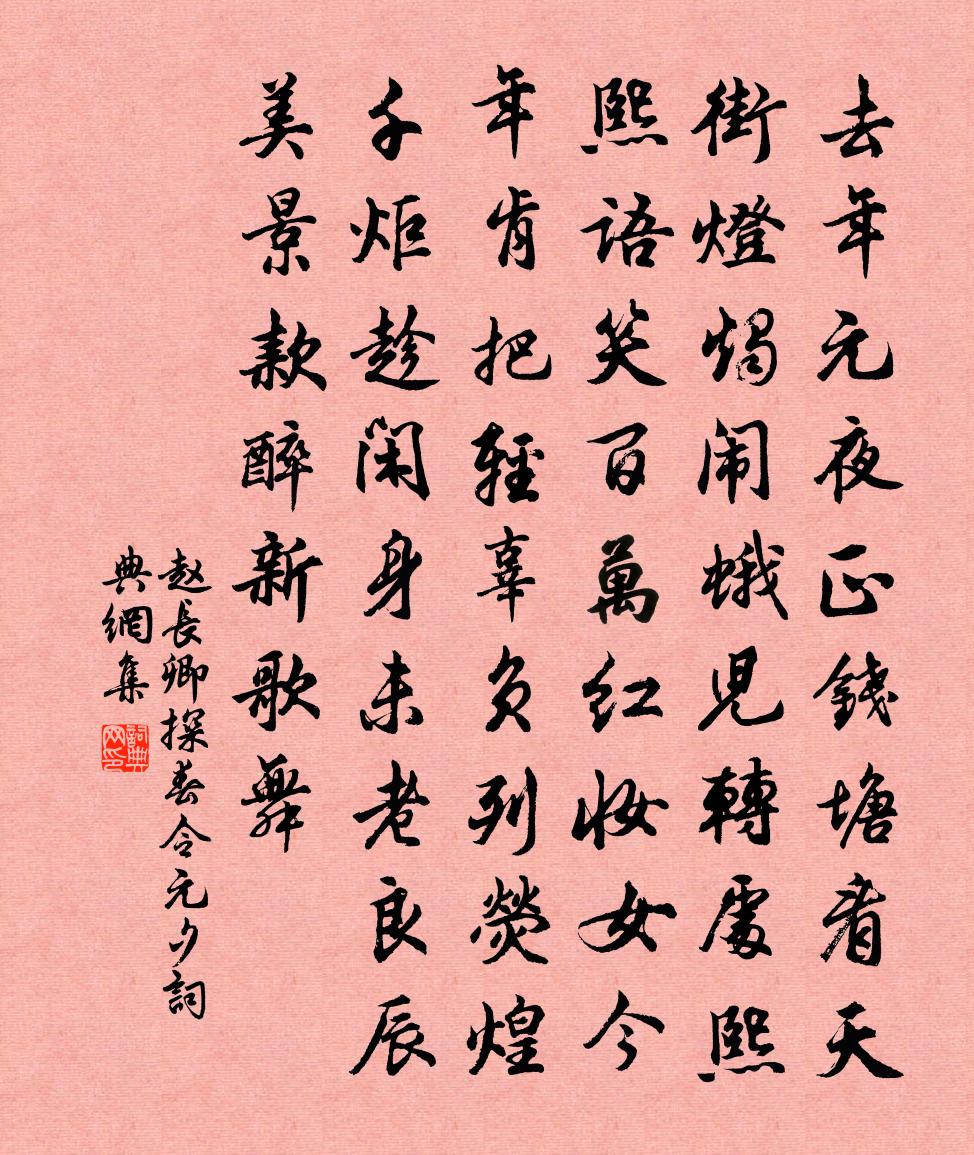 去年元夜正錢塘看天
街燈燭闹蛾兒轉處熙
熙語笑百萬红妆女今
年肯把輕辜负列熒煌
千炬趁闲身未老良辰
美景款醉新歌舞
赵長卿探春令元夕詞
典網集
詞典网印